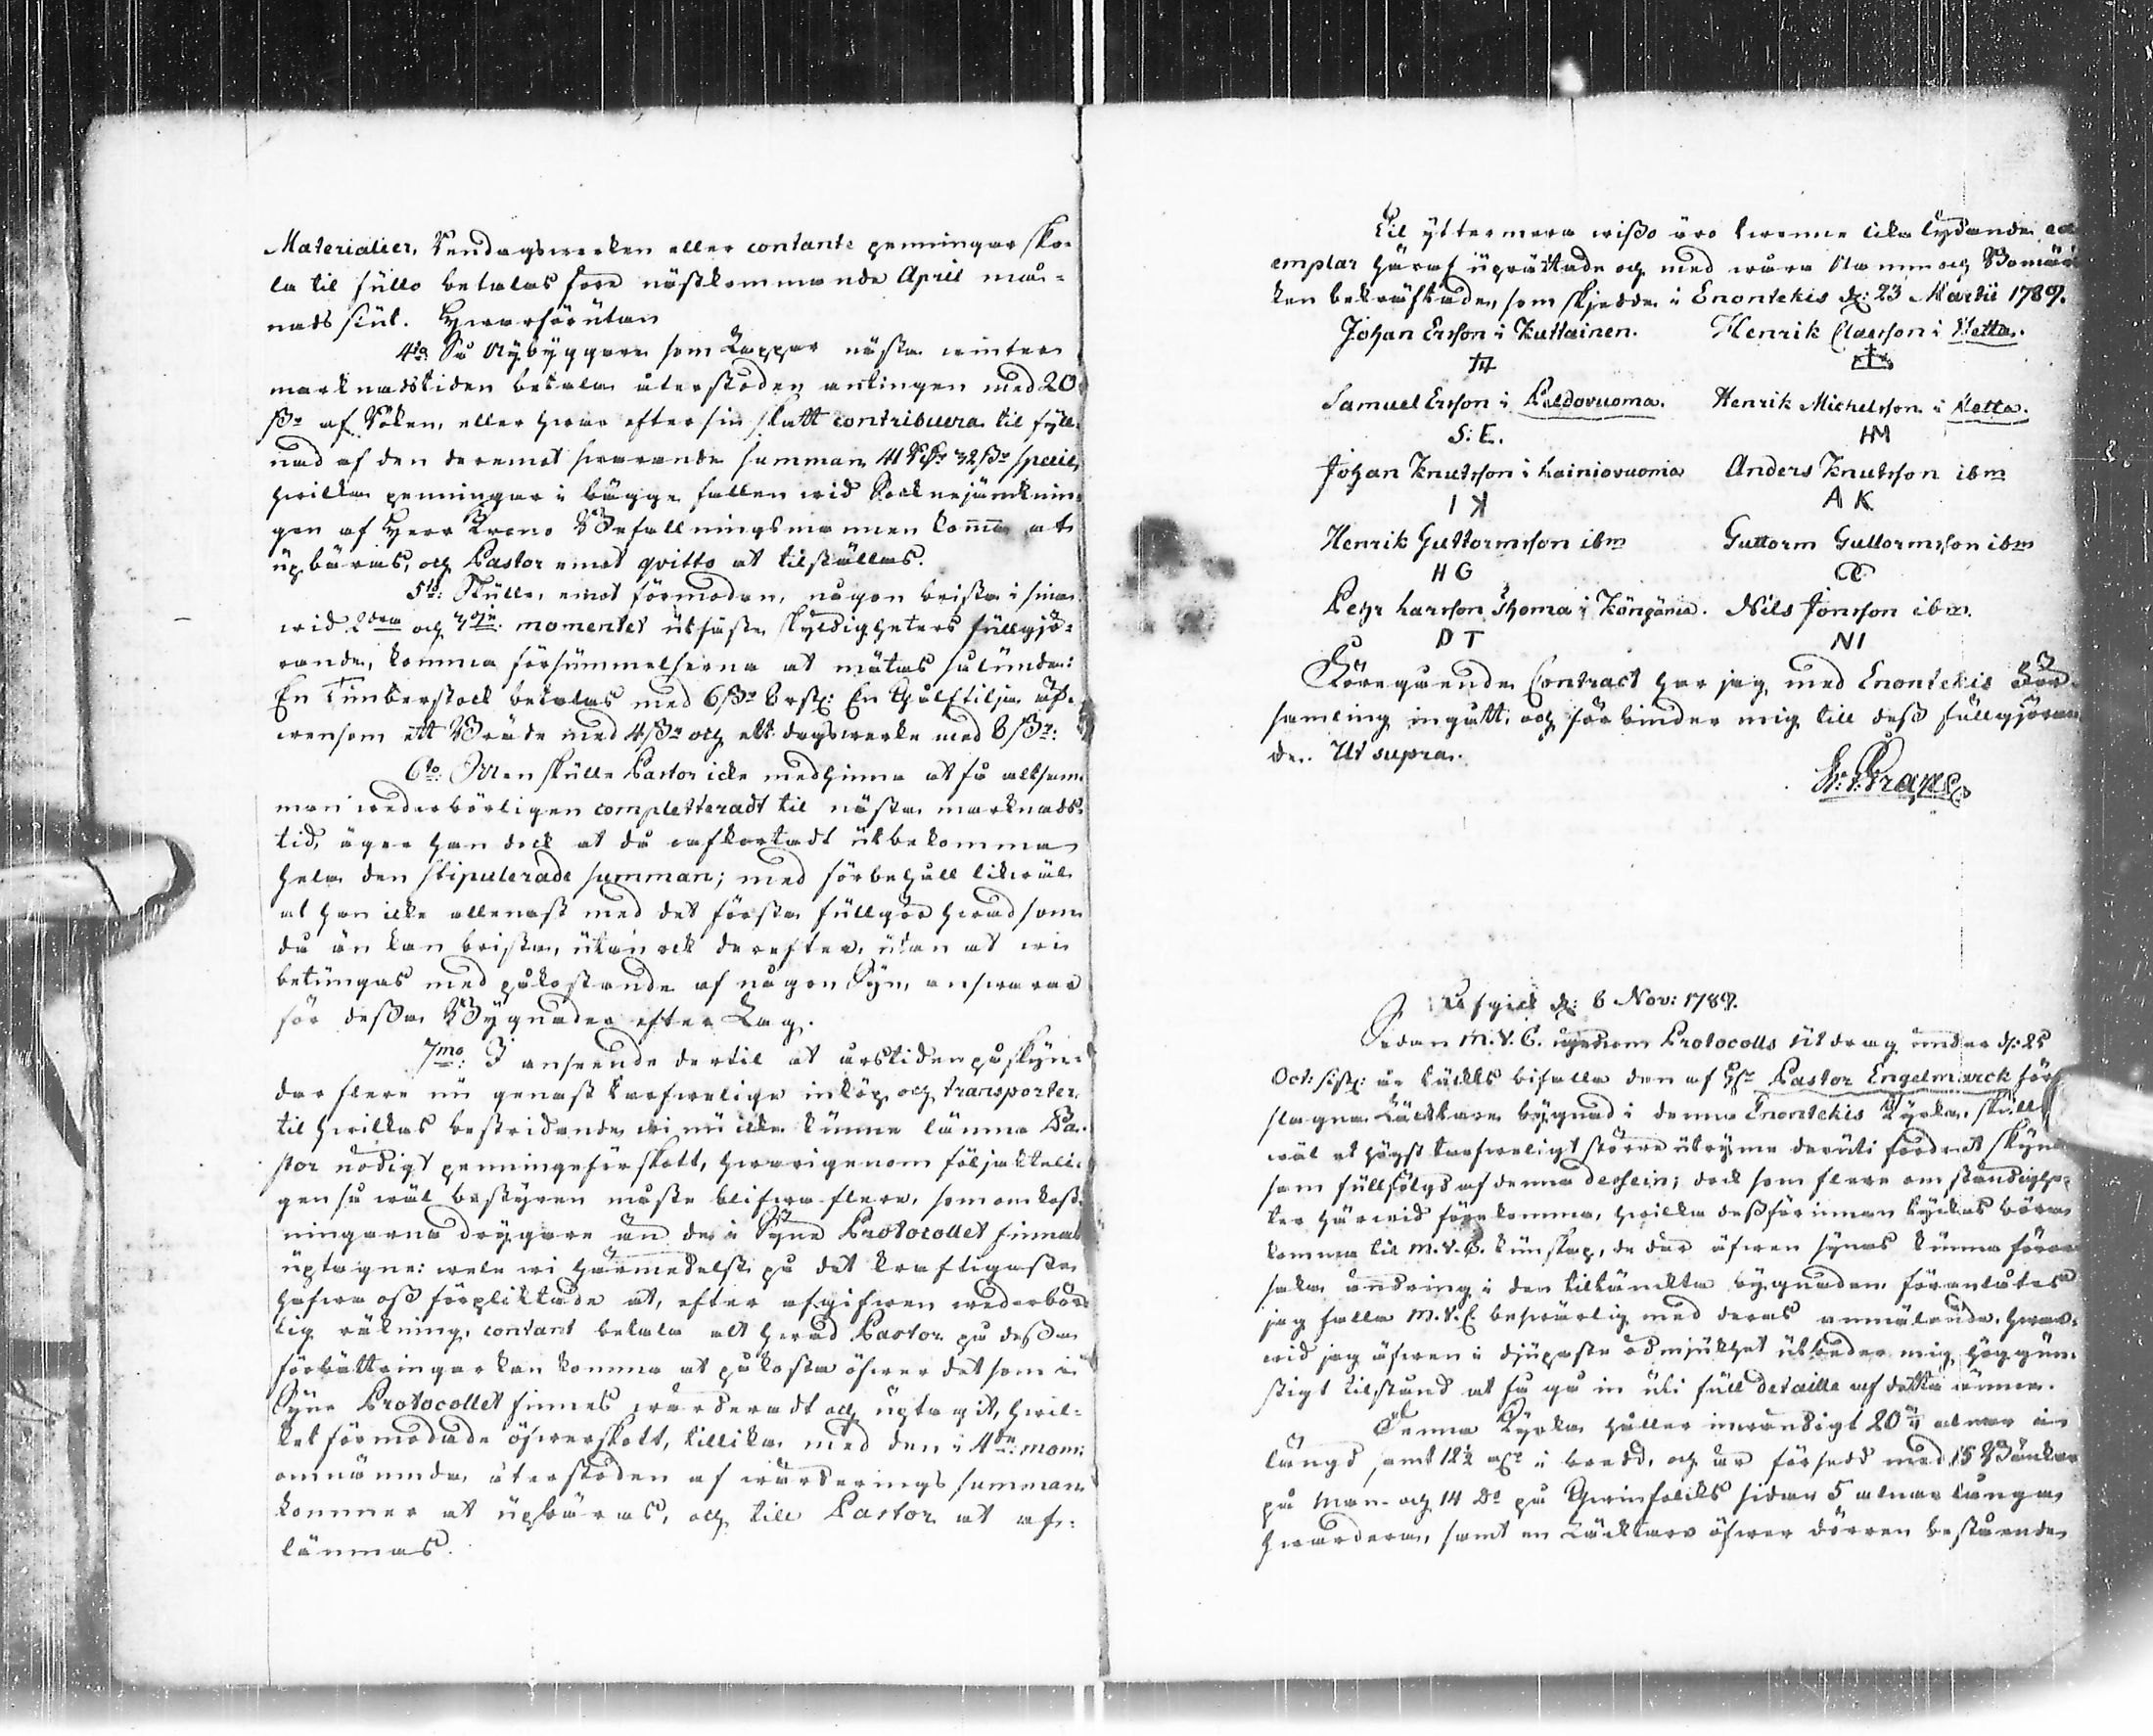 Materialier, Dagswerken eller contante penningar sko-
la til fullo betalas före nästkommande April må-
nads slut. Hwarförutan
4to Så Nybyggare som Lappar nästa winter
marknadstiden betala återstoden antingen med 20
ßr af Röken, eller hwar efter sin skatt contribuera til fyll-
nad af den deremot swarande summan 41 Rdr 32 ßr specie,
hwilka penningar i bägge fallen wid Socknejämknin-
gen af Herr Krono Befallningsmannen komma at
upbäras, och Pastor emot qvitto at tilställas.
5to: Skulle, emot förmodan, någon brista i sina
wid 2dra och 3dje momentet utfäste skyldigheters fullgjö-
rande, komma försummelserna at mätas sålunda:
En Timberstock betalas med 6 ßr 8 rst: En Gålftilja äf-
wensom ett Bräde med 4 ßr och ett dagswerke med 8 ßr:
6to: Men skulle Pastor icke medhinna at få altsam-
man wederbörligen completteradt til nästa marknads-
tid, äger han dock at då oafkortadt utbekomma
hela den stipulerade summan; med förbehåll likwäl
at han icke allenast med det första fullgör hwad som
då än kan brista, utan ock derefter, utan at wi
betungas med påkostande af någon Syn, answarar
för dessa Bygnader efter Lag.
7mo: I anseende dertil at årstiden påskyn-
dar flere nu genast tarfwelige inköp och transporter,
til hwilkas bestridande wi nu icke kunne lämna Pa-
stor nödigt penningeförskott, hwarigenom följakteli-
gen så wäl bestyren måste blifwa flere, som omkost-
ningarna drygare än de i Syne Protocollet finnas
uptagne: wele wi härmedelst på det kraftigaste
hafwa oss förpliktade at, efter afgifwen wederbör-
lig räkning, contant betala alt hwad Pastor på dessa
förbättringar kan komma at påkosta öfwer det som i
Syne Protocollet finnes wärderadt och uptagit, hwil-
ket förmodade öfwerskott, tillika med den i 4de mom:
omnämnda återstoden af wärderings summan
kommer at upbäras, och till Pastor at af-
lämnas.
Til yttermera wisso äro twenne lika lydande ex-
emplar häraf uprättade och med wåra Namn och Bomär-
ken bekräftade, som skjedde i Enontekis d: 23 Martii 1789.
Johan Ersson i Kuttainen. Henrik Classon i Hetta.
Samuel Ersson i Peldovuoma. Henrik Michelsson i Netta.
S: E. HM
Johan Knutsson i Lainiovuoma Anders Knutsson ibm
I K A K
Henrik Guttormsson ibm Guttorm Guttormsson ibm
H G
Pehr Larsson Thoma i Köngämä. Nils Jonsson ibm.
D T NI
Föreguende Contract har jag med Enontekis För-
samling ingått, och förbinder mig till dess fullgjöran
de. Ut supra.
Afgick d: 6 Nov: 1789.
Sedan M. V. C. igenom Protocolls Utdrag under d: 25
Oct: sist: är täckts bifalla den af Hr Pastor Engelmarck före
slagna Läcktare bygnad i denna Enontekis Kyrka, skulle
wäl et högst tarfweligt större utryme deruti fordrat skynd
sam fullfölgd af denna dessein; dock som flere omständighe-
ter härwid förekomma, hwilka dessförinnan tyckas böra
komma til M. V. C. kunskap, de der äfwen synas kunna föror-
saka ändring i den tiltänkta bygnaden förenlåtes
jag falla M. V. C. beswärlig med deras anmälande, hwar-
wid jag äfwen i djupaste ödmjukhet utbeder mig höggun-
stigt tilstånd at få gå in uti full detaille af detta ämne.
Denna Kyrka håller inwändigt 20 alnar i
längd, samt 12½ alr i bredd, och är försedd med 15 Bänkar
på Man- och 14 Do på Qwinfolks sidan 5 alnar långa
hwardera, samt en Läcktare öfwer dörren bestående